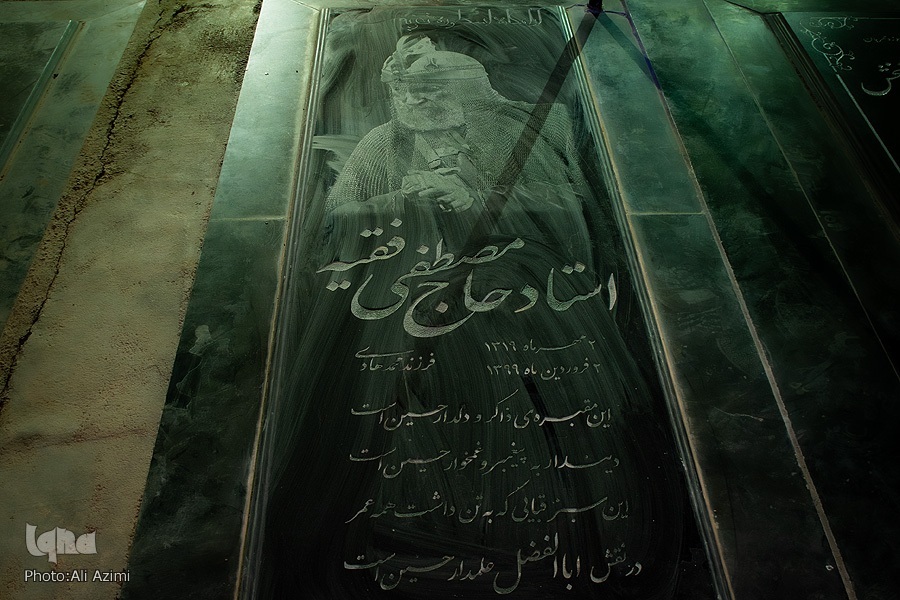 استاد حاج مصطفی فقیه
۲ مهر ماه ۱۳۱۹
۲ فروردین ماه ۱۳۹۹
فرزند محمد هادی
این مقبره‌ی ذاکر و دلدار حسین است
دیندار به پیغمبر و غمخوار حسین است
این سبز قبایی که به تن داشت همه عمر
در نقش اباالفضل علمدار حسین است
Iqna
Photo:Ali Azimi